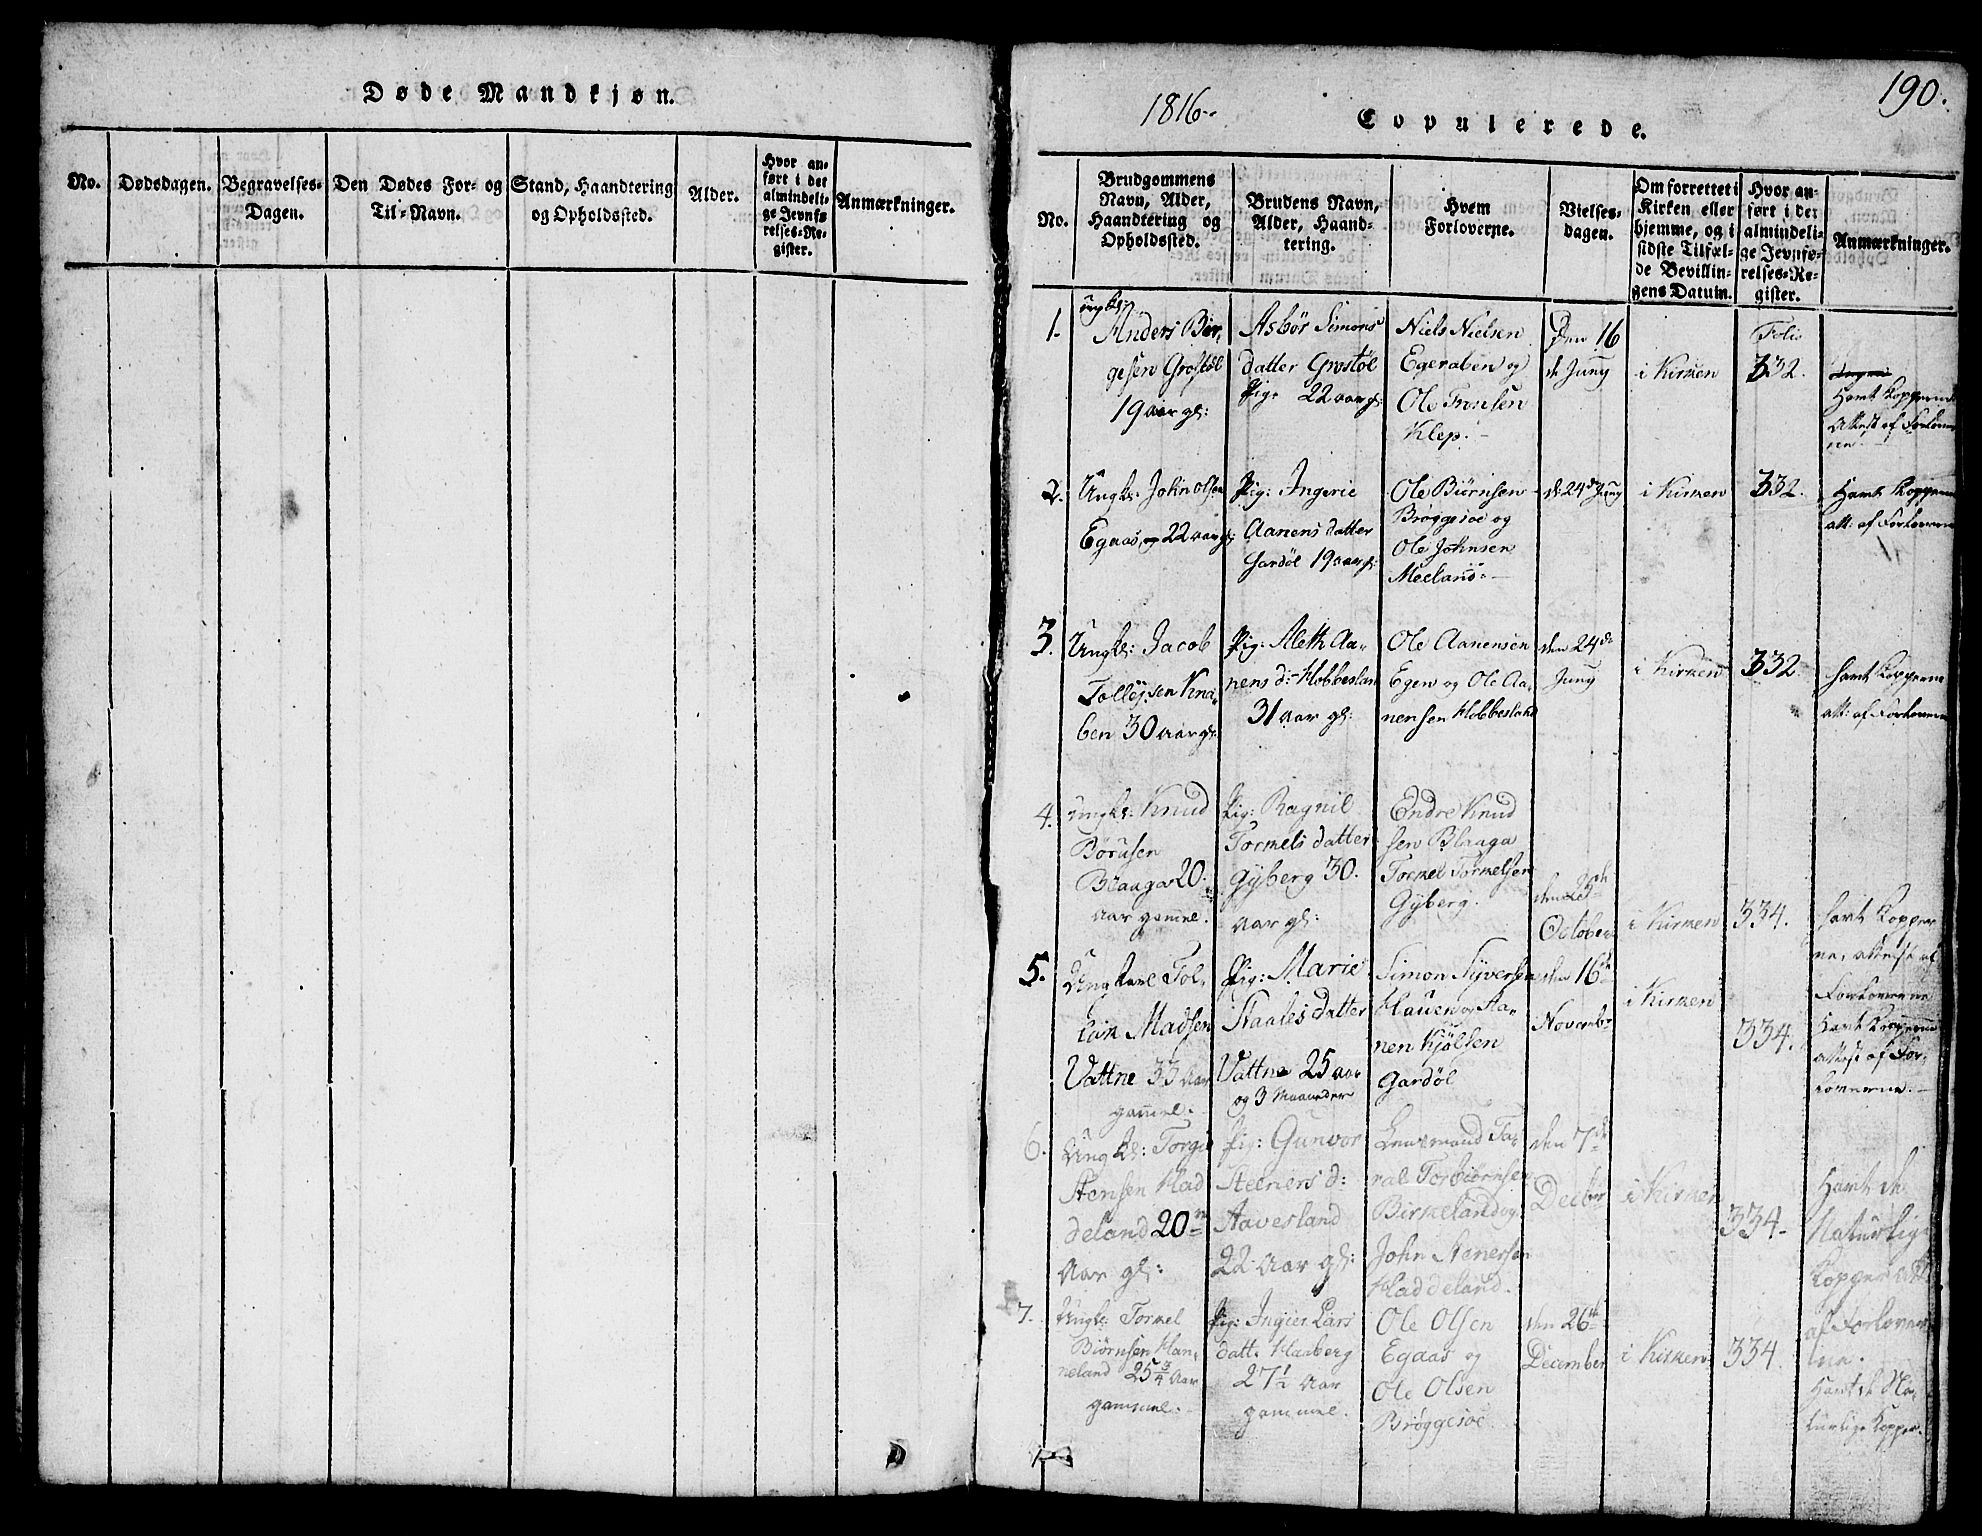 Døde Mandkjøn.
No.
Dødsdagen.
Begravelses-
Dagen.
Den Dødes For- og
Til-Navn.
Stand, Haandtering
og Opholdssted.
Alder.
Hvor an-
ført i det
almindeli-
ge Jevnfø-
relses-Re-
gister.
Anmærkninger.
190.
1816
Copulerede.
No.
Brudgommens
Navn, Alder,
Haandtering og
Opholdssted.
Brudens Navn,
Alder, Haand-
tering.
Hvem
Forloverne.
Vielses-
dagen.
Om forrettet i
Kirken eller
hjemme, og i
sidste Tilfæl-
de Bevillin-
gens Datum.
Hvor an-
ført i det
almindeli-
ge Jevnfø-
relses-Re-
gister.
Anmærkninger.
1.
Ungk:
Anders Bør,
gesen Grostøl
19 aar gl:
Asbør Simons
datter Grostøl
Pige 22 aar gl:
Niels Nielsen
Egeraben og
Ole Tronsen
Klep.
Den 16
de Juny
i Kirken
Folio
332.
Havt Kopperne
Attest af Forlover
ne
2.
Ungk: John Olsen
Egaas, 22 aar gl:
Pig: Ingerie
Aanensdatter
Gardøl 19 aar gl:
Ole Biørnsen
Brøggesøe og
Ole Johnsen
Meeland
d: 24de Juny
i Kirken
332.
Havt Kopperne
att: af Forloverne
3.
Ungk: Jacob
Tollejsen Kna,
ben 30 aar gl:
Pig: Aleth Aa,
nens d: Hobbesland
31 aar gl:
Ole Aanensen
Egen og Ole Aa,
nensen Hobbesland
den 24de
Juny
i Kirken
332
havt Kopperne
att: af Forloverne
4.
Ungk: Knud
Børusen
Blaaga 20.
aar gamel.
Pig: Ragnil
Tormels datter
Gyberg 30.
aar gl:
Endre Knud
sen Blaaga
Tormel Tormelsen
Gyberg.
October
i Kirken
334.
havt Kopper
ne, attest af
Forloverne
5.
Ungkarl Tol,
Madsen
Vattne 33 aar
gamel.
Pig: Marie
Staalesdatter
Vattne 25 aar
og 3 Maaneder
Simon Syversen
Hauen og Aa,
nen Kjølsen
Gardøl
den 16de
Novembr
i Kirken
334.
Havt Kopperne
attest af For,
loverne.
6.
Ungk: Torgie
Stensen Had
deland 20
Aar gl:
Pig: Gunvor
Steners d:
Aavesland
22 Aar gl:
Lensmand Ta,
ral Torbiørnsen
Birkeland og
John Stenersen
Haddeland.
den 7de
Decbr
i Kirken
334.
Havt de
Naturlige
Kopper att
af Forlover
ne.
7.
Ungk: Tormel
Biørnsen Han,
neland 25 3/4 Aar
gammel.
Pig: Ingier Lars
datt. Haaberg
27 1/2 Aar
gammel.
Ole Olsen
Egaas og
Ole Olsen
Brøggesøe
den 26de
December
i Kirken.
334.
Havt de Na,
turlige Kopper.